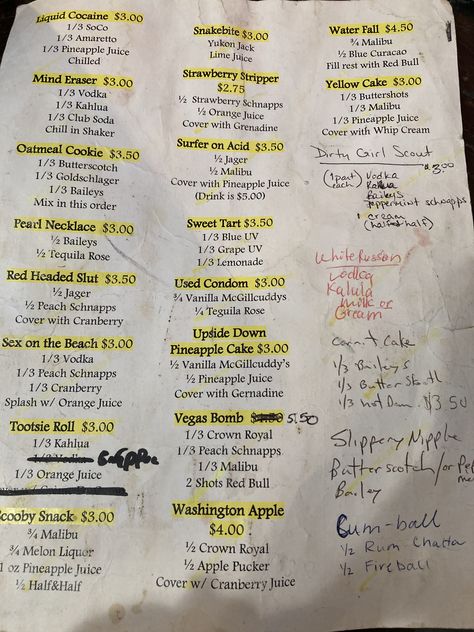 Liquid Cocaine $3.00
1/3 SoCo
1/3 Amaretto
1/3 Pineapple Juice
Chilled
Mind Eraser $3.00
1/3 Vodka
1/3 Kahlua
1/3 Club Soda
Chill in Shaker
Oatmeal Cookie $3.50
1/3 Butterscotch
1/3 Goldschlager
1/3 Baileys
Mix in this order
Pearl Necklace $3.00
½ Baileys
½ Tequila Rose
Red Headed Slut $3.50
½ Jager
½ Peach Schnapps
Cover with Cranberry
Sex on the Beach $3.00
1/3 Vodka
1/3 Peach Schnapps
1/3 Cranberry
Splash w/ Orange Juice
Tootsie Roll $3.00
1/3 Kahlua
1/3 Orange Juice
Scooby Snack $3.00
¾ Malibu
¾ Melon Liquor
1 oz Pineapple Juice
½ Half&Half
Snakebite $3.00
Yukon Jack
Lime Juice
Strawberry Stripper
$2.75
½ Strawberry Schnapps
½ Orange Juice
Cover with Grenadine
Surfer on Acid $3.50
½ Jager
½ Malibu
Cover with Pineapple Juice
(Drink is $5.00)
Sweet Tart $3.50
1/3 Blue UV
1/3 Grape UV
1/3 Lemonade
Used Condom $3.00
¾ Vanilla McGillcuddys
¼ Teguila Rose
Upside Down
Pineapple Cake $3.00
½ Vanilla McGillcuddy's
½ Pineapple Juice
Cover with Gernadine
Vegas Bomb 5.50
1/3 Crown Royal
1/3 Peach Schnapps
1/3 Malibu
2 Shots Red Bull
Washington Apple
$4.00
½ Crown Royal
½ Apple Pucker
Cover w/ Cranberry Juice
Water Fall $4.50
¾ Malibu
½ Blue Curacao
Fill rest with Red Bull
Yellow Cake $3.00
1/3 Buttershots
1/3 Malibu
1/3 Pineapple Juice
Cover with Whip Cream
Dirty Girl Scout
$3.00
(1 part each) Vodka
Baileys
Peppermint schnapps
1 cream
(half+half)
White Russian
Vodka
Kalula
Milk or
Cream
Carrot Cake
1/3 Baileys
1/3 Butter
1/3 Hot Dam $3.50
Slippery Nipple
Butterscotch/or
Bailey
Cum-ball
½ Rum Chatta
½ Fireball